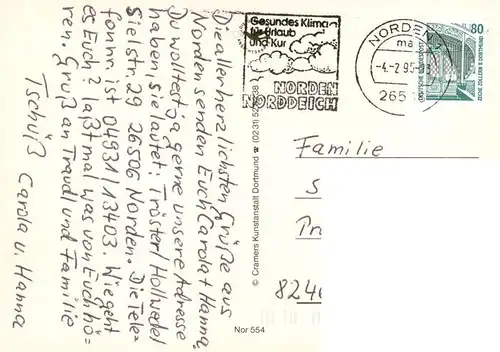 Die allerherzlichsten Grüße aus
Norden senden Euch Carola + Hanna.
Du wolltest ja gerne unsere Adresse
haben, sie lautet: Trösterl Hollwedel
Sielstr. 29 26506 Norden. Die Tele=
fonnr. ist 04931/13403. Wie geht
es Euch? Laßt mal was von Euch hö=
ren. Gruß an Traudl und Familie
Tschüß Carola u. Hanna
Gesundes Klima
für Urlaub
und Kur
NORDEN
NORDDEICH
NORDEN
ma
-4.-2.95-
265
80
ZECHE ZOLLERN II DORTMUND
© Cramers Kunstanstalt Dortmund ☎ (0231)
Nor 554
Familie
S
8240